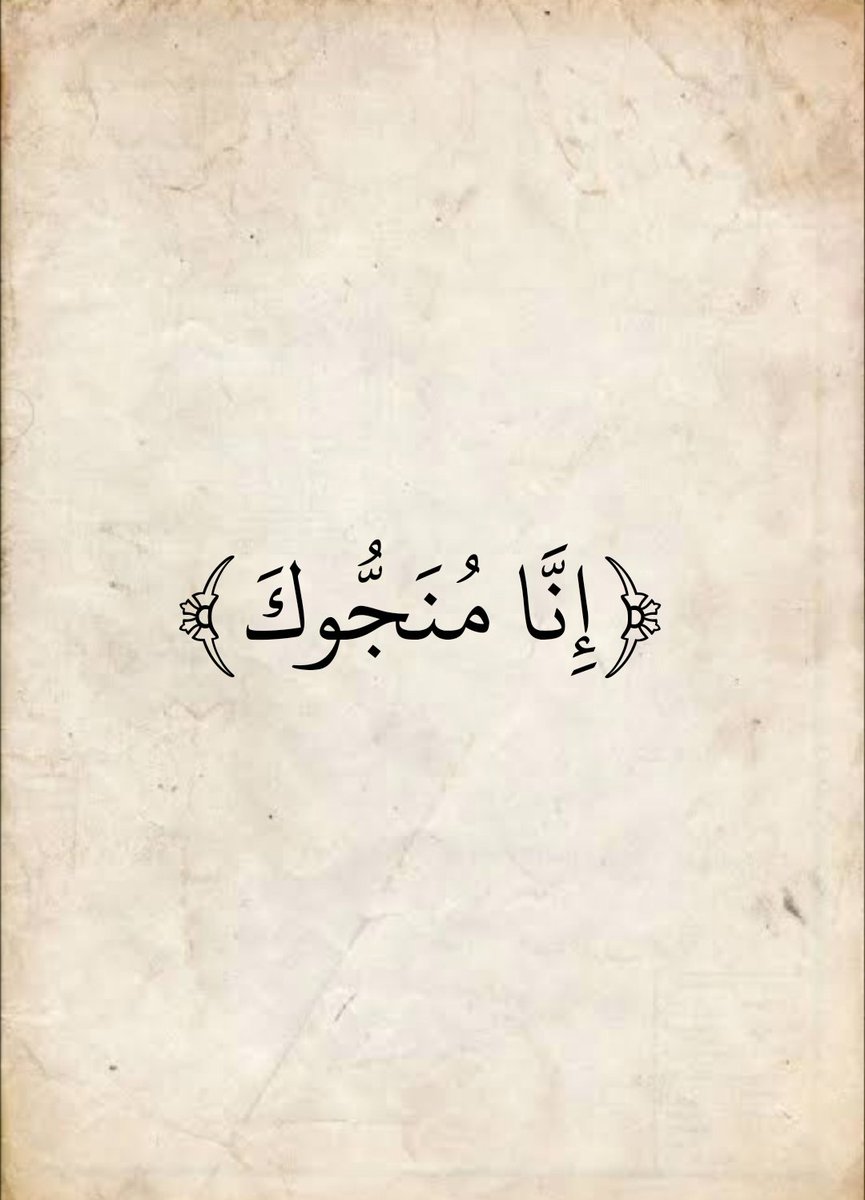 ﴿ إِنَّا مُنَجُّوكَ ﴾